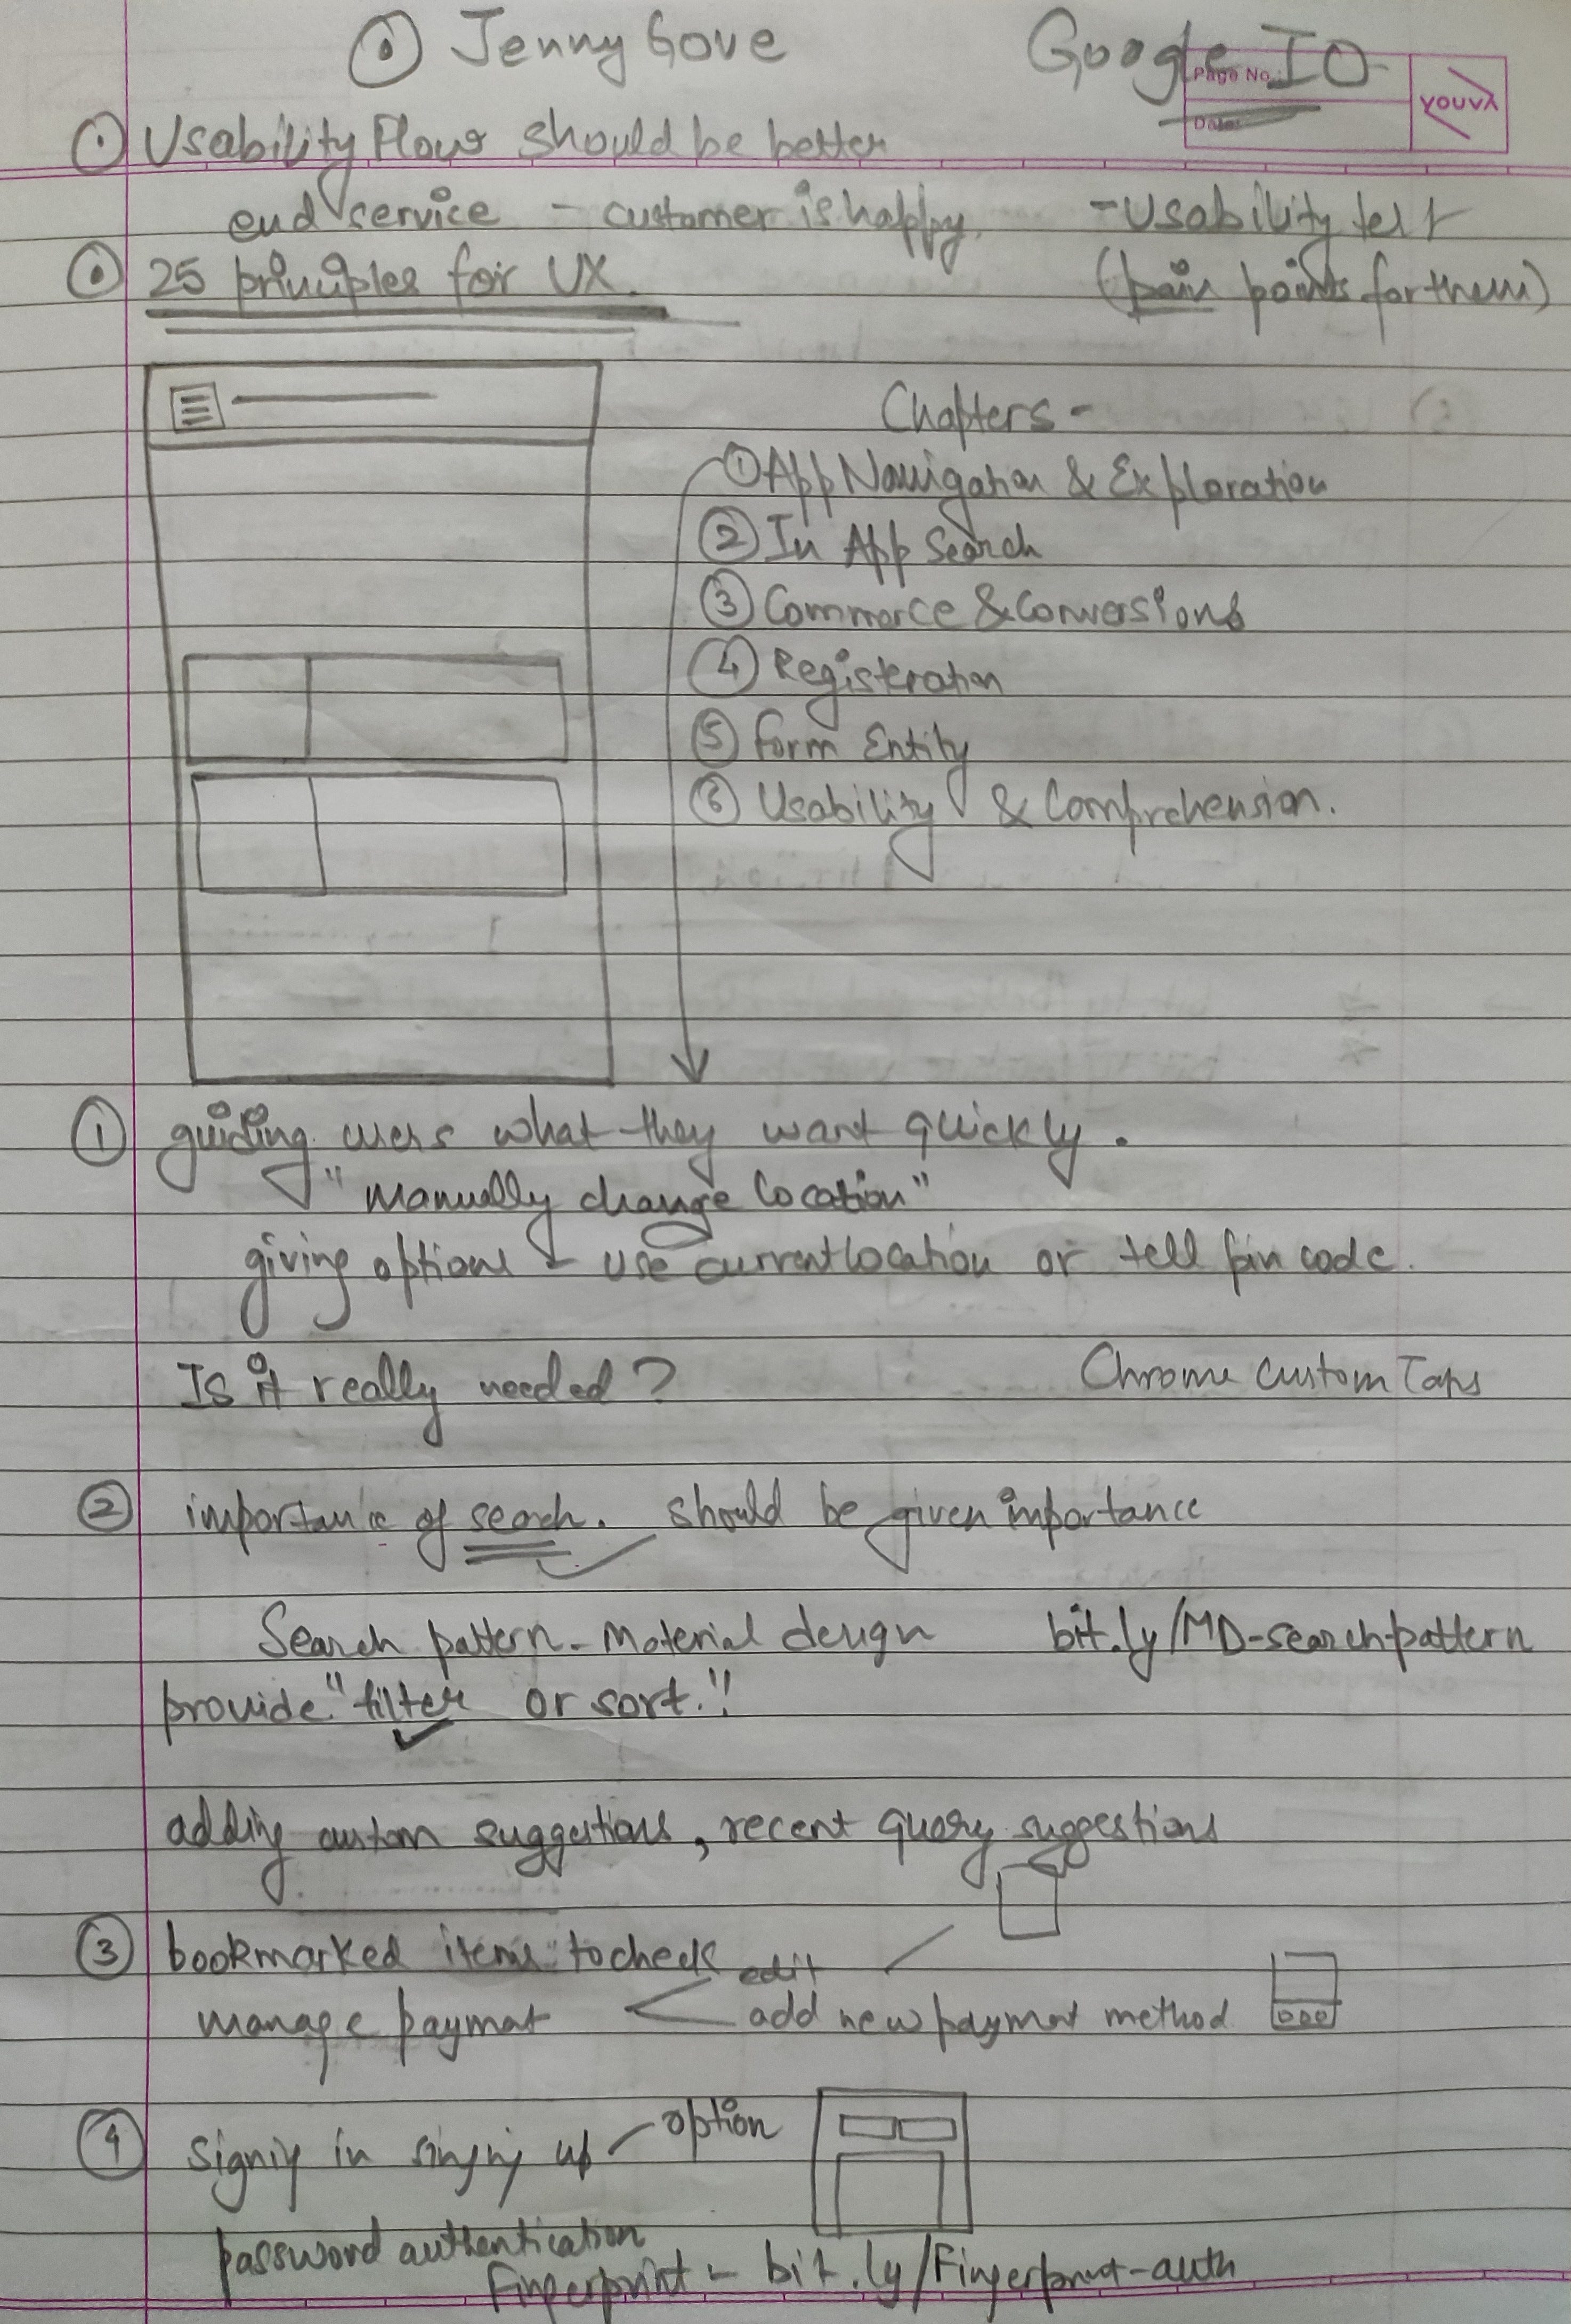 Jenny Gove Google IO
Page No.:
Date:
YOUVA
Usability Flows should be better
end service - customer is happy. - Usability test
25 principles for UX. (pain points for them)
Chapters -
① App Navigation & Exploration
② In App Search
③ Commerce & Conversions
④ Registeration
⑤ Form Entity
⑥ Usability & Comprehension.
① guiding users what they want quickly.
"manually change location"
giving options - use current location or tell pin code.
Is it really needed? Chrome Custom Tabs
② importance of search. should be given importance
Search pattern - Material design bit.ly/MD-searchpattern
provide "filter or sort."
adding custom suggestions, recent query suggestions
③ bookmarked items to check
edit
manage paymat add new paymat method
④ signiy in singnj up option
password authentication
Fingerprint - bit.ly/Fingerprint-auth